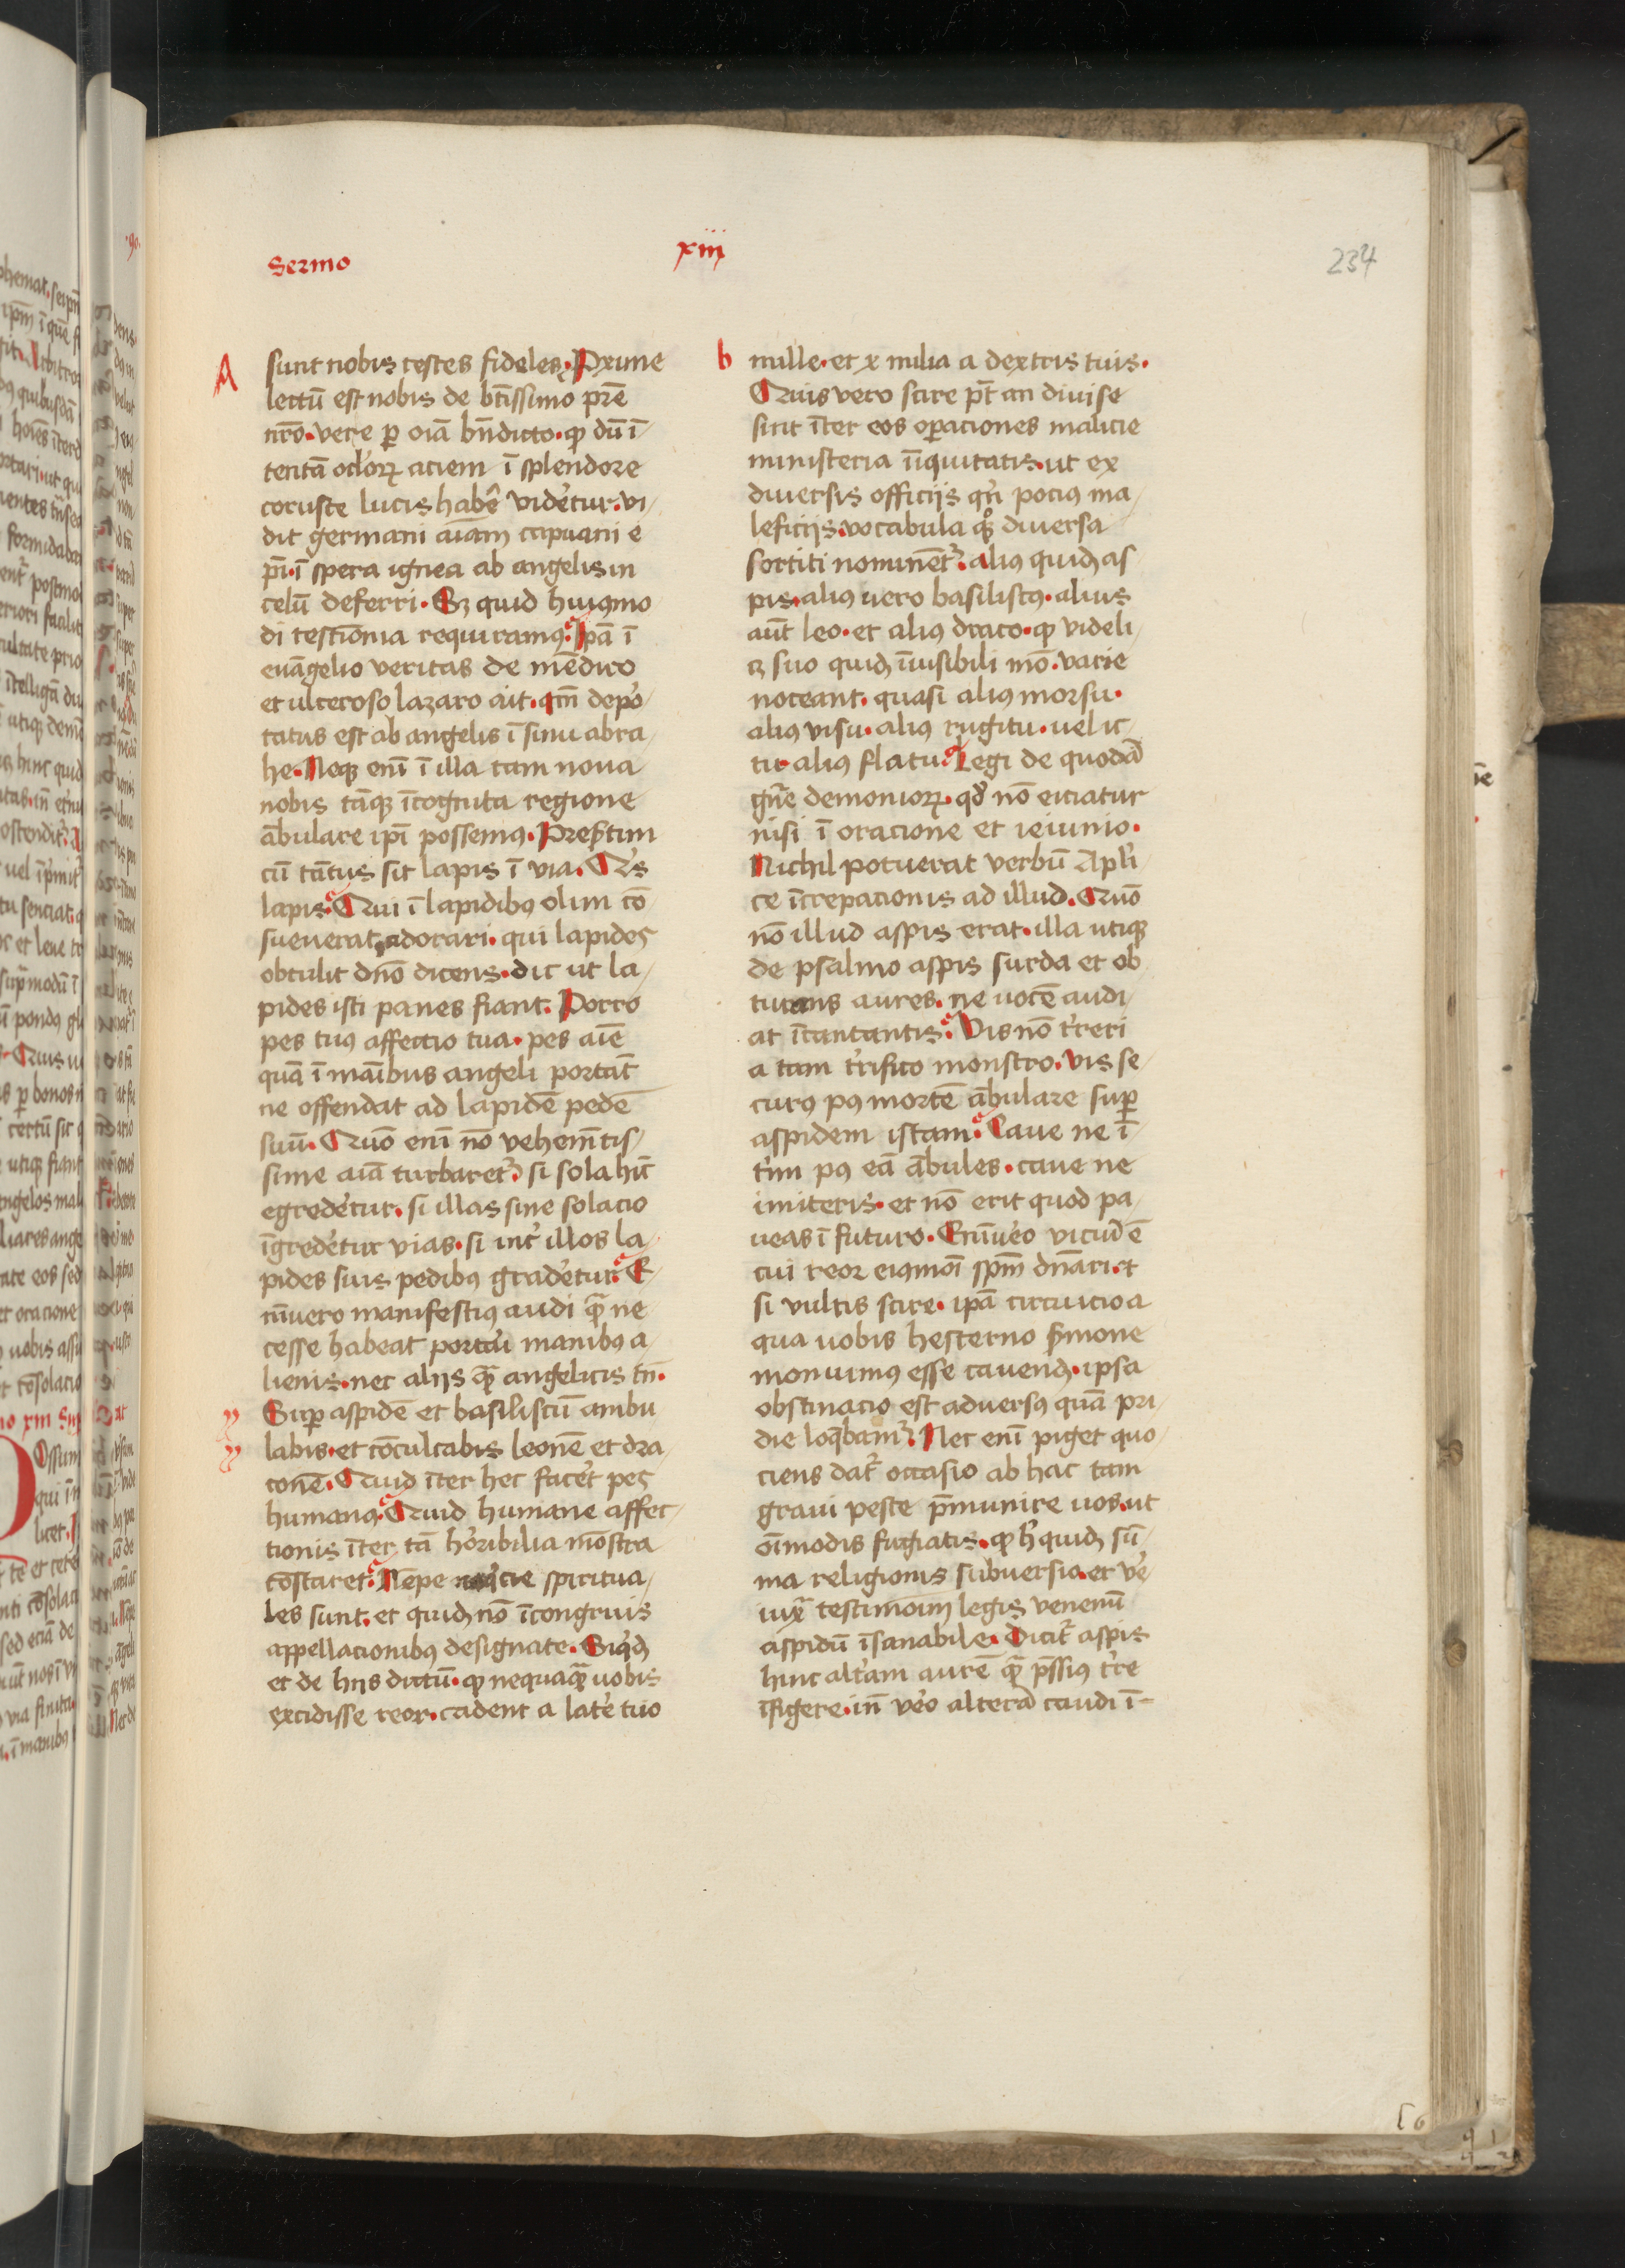 Sermo
xiii
234
A
sunt nobis testes fideles. Pxime
lectū est nobis de btīssimo prē
nrō. vere ꝑ oīa bn̄dicto. ꝙ dū ī
tentā oclorꝝ aciem ī splendore
corusce lucis habē videtur. vi
dit germani aīam capuani e
pī. ī spera ignea ab angelis in
celū deferri. Sꝫ quid huiꝰmo
di testīonia requiramꝰ. Ipā ī
euāgelio veritas de mēdico
et ulceroso lazaro ait. qm̄ depor
tatus est ab angelis ī sinu abra
he. Neqꝫ enī ī illa tam noua
nobis tāqꝫ īcognita regione
ābulare ipī possemꝰ. Presertim
cū tātus sit lapis ī via. Qis
lapis. Qui ī lapidibꝰ olim cō
sueuerat adorari. qui lapides
obtulit dnō dicens. dic ut la
pides isti panes fiant. Porro
pes tuꝰ affectio tua. pes aīe
quā ī manībus angeli portāt
ne offendat ad lapidē pedē
suū. Quō enī nō vehemētis
sime aīa turbaretᷣ si sola hīc
egredetur. si illas sine solacio
īgredetur vias. si int' illos la
pides suis pedibꝰ gradetur. E
nīvero manifestiꝰ audi qꝫ ne
cesse habeat portari manibꝰ a
lienis. nec alijs qꝫ angelicis tn̄.
Suꝑ aspidē et basiliscū ambu
labis. et cōculcabis leonē et dra
conē. Quid īter hec facet pes
humanꝰ. Quid humane affec
tionis īter tā horibilia mōstra
cōstaret. Nēpe neqcie spiritua
les sunt. et quidꝫ nō īcongruis
appellacionibꝰ designate. Siqdꝫ
et de hijs dictū. ꝙ nequaqꝫ uobis
excidisse reor. cadent a late tuo
b
mille. et x milia a dextris tuis.
Quis vero scire pt̄ an diuise
sint īter eos operaciones malicie
ministeria īiquitatis. ut ex
diuersis officijs qn̄ pociꝰ ma
leficijs. vocabula qꝫ diuersa
sortiti nominētᷣ. aliꝰ quidꝫ as
pis. aliꝰ uero basiliscꝰ. alius
aūt leo. et aliꝰ draco. ꝙ videli
cꝫ suo quidꝫ īuisibili mō. varie
noceant. quasi aliꝰ morsu.
aliꝰ visu. aliꝰ rugitu. uel ic
tu. aliꝰ flatu. Legi de quodā
gn̄e demoniorꝝ. qd' nō eiciatur
nisi ī oracione et ieiunio.
Nichil potuerat verbū Apli
ce īcrepacionis ad illud. Quō
nō illud aspis erat. illa utiqꝫ
de psalmo aspis surda et ob
turans aures. ne uocē audi
at īcantantis. Vis nō t'reri
a tam t'rifico monstro. vis se
curꝰ pꝰ mortē ābulare suꝑ
aspidem istam. Caue ne ī
t'im pꝰ eā ābules. caue ne
imiteris. et nō erit quod pa
ueas ī futuro. Enīuero viciū ē
cui reor eiꝰmōi spm̄ dn̄ari. et
si vultis scire. ipā circuicio a
qua uobis hesterno smone
monuimꝰ esse cauendꝫ. ipsa
obstinacio est aduersꝰ quā pri
die loqbamᷣ. Nec enī piget quo
ciens datᷣ occasio ab hac tam
graui peste p̄munire uos. ut
oīmodis fugiatis. ꝙ h' quidꝫ sū
ma religionis subuersio. et ve
iuxͣ testimoīm legis venenū
aspidū īsanabile. Dicitᷣ aspis
hinc alt'am aurē qꝫ p̄ssiꝰ t're
īfigere. in̄ vēo alterā caudī ī